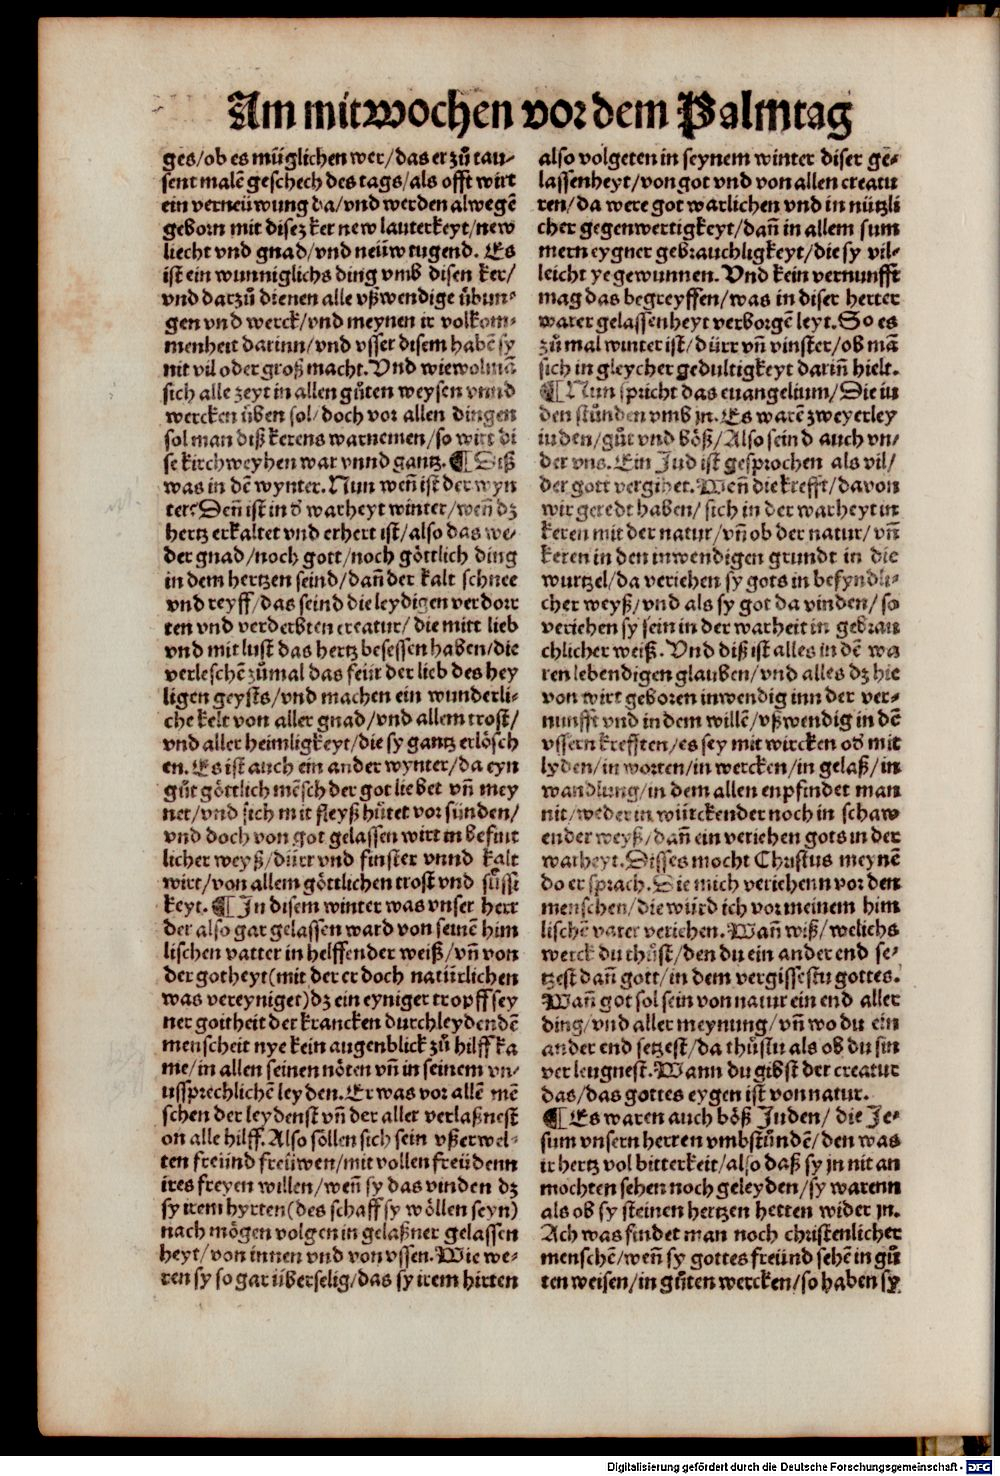 Am mitwochen vor dem Palmtag
ges/ob es müglichen wer/das er zů tau-
sent malē geschech des tags/als offt wirt
ein verneüwung da/vnd werden alwegē
geborn mit disez ker new lauterkeyt/new
liecht vnd gnad/vnd neüw tugend. Es
ist ein wunniglichs ding vmb disen ker/
vnd darzů dienen alle vßwendige übun-
gen vnd werck/vnd meynen ir volkom-
menheit darinn/vnd vsser disem habē sy
nit vil oder groß macht. Vnd wiewol mā
sich alle zeyt in allen gůten weysen vnnd
wercken üben sol/doch vor allen dingen
sol man diß kerens warnemen/so wirt di
se kirchweyhen war vnnd gantz. ¶ Diß
was in dē wynter. Nun weñ ist der wyn
ter? Deñ ist in d̄ warheyt winter/weñ dz
hertz erkaltet vnd erhert ist/also das we-
der gnad/noch gott/noch göttlich ding
in dem hertzen seind/dañ der kalt schnee
vnd reyff/das seind die leydigen verdorr
ten vnd verderbten creatur/die mitt lieb
vnd mit lust das hertz besessen haben/die
verleschē zůmal das feür der lieb des hey
ligen geysts/vnd machen ein wunderli-
che kelt von aller gnad/vnd allem trost/
vnd aller heimligkeyt/die sy gantz erlösch
en. Es ist auch ein ander wynter/da eyn
gůt göttlich mēsch der got liebet vñ mey
net/vnd sich mit fleyß hütet vor sünden/
vnd doch von got gelassen wirt in befint
licher weyß/dürr vnd finster vnnd kalt
wirt/von allem göttlichen trost vnd süssi
keyt. ¶ In disem winter was vnser herr
der also gar gelassen ward von seinē him
lischen vatter in helffender weiß/vñ von
der gotheyt(mit der er doch natürlichen
was vereyniget)dz ein eyniger tropff sey
ner goitheit der krancken durchleydendē
menscheit nye kein augenblick zů hilff ka
me/in allen seinen nöten vñ in seinem vn-
ussprechlichē leyden. Er was vor allē mē
schen der leydenst vñ der aller verlaßnest
on alle hilff. Also söllen sich sein vßerwel-
ten freünd freüwen/mit vollen freüdenn
ires freyen willen/weñ sy das vinden dz
sy irem hyrten(des schaff sy wöllen seyn)
nach mögen volgen in gelaßner gelassen
heyt/von innen vnd von vssen. Wie we-
ren sy so gar überselig/das sy irem hirten
also volgeten in seynem winter diser ge-
lassenheyt/von got vnd von allen creatu
ren/da were got warlichen vnd in nützli
cher gegenwertigkeyt/dañ in allem sum
mern eygner gebrauchligkeyt/die sy vil-
leicht ye gewunnen. Vnd kein vernunfft
mag das begreyffen/was in diser herter
warer gelassenheyt verborgē leyt. So es
zů mal winter ist/dürr vñ vinster/ob mā
sich in gleycher gedultigkeyt dariñ hielt.
¶ Nun spricht das euangelium/Die iu
den stůnden vmb jn. Es warē zweyerley
iuden/gůt vnd böß/Also seind auch vn/
der vns. Ein Jud ist gesprochen als vil/
der gott vergihet. Weñ die krefft/davon
wir geredt haben/sich in der warheyt in
keren mit der natur/vñ ob der natur/vñ
keren in den inwendigen grundt in die
wurtzel/da veriehen sy gots in befyndli-
cher weyß/vnd als sy got da vinden/so
veriehen sy sein in der warheit in gebrau
chlicher weiß. Vnd diß ist alles in dē wa
ren lebendigen glauben/vnd alles dz hie
von wirt geboren inwendig inn der ver-
nunfft vnd in dem willē/vßwendig in dē
vssern krefften/es sey mit wircken od̄ mit
lyden/in worten/in wercken/in gelaß/in
wandlung/in dem allen enpfindet man
nit/weder in würckender noch in schaw
ender weyß/dañ ein veriehen gots in der
warheyt. Disses mocht Christus meynē
do er sprach. Die mich veriehenn vor den
menschen/die würd ich vor meinem him
lischē vater veriehen. Wañ wiß/welichs
werck du thůst/den du ein ander end se-
tzest dañ gott/in dem vergissestu gottes.
Wañ got sol sein von natur ein end aller
ding/vnd aller meynung/vñ wo du ein
ander end setzest/da thůstu als ob du sin
verleugnest. Wann du gibst der creatur
das/das gottes eygen ist von natur.
¶ Es waren auch böß Juden/die Je-
sum vnsern herren vmbstůndē/den was
ir hertz vol bitterkeit/also daß sy jn nit an
mochten sehen noch geleyden/sy warenn
als ob sy steinen hertzen hetten wider jn.
Ach was findet man noch christenlicher
menschē/weñ sy gottes freünd sehē in gů
ten weisen/in gůten wercken/so haben sy
Digitalisierung gefördert durch die Deutsche Forschungsgemeinschaft - DFG